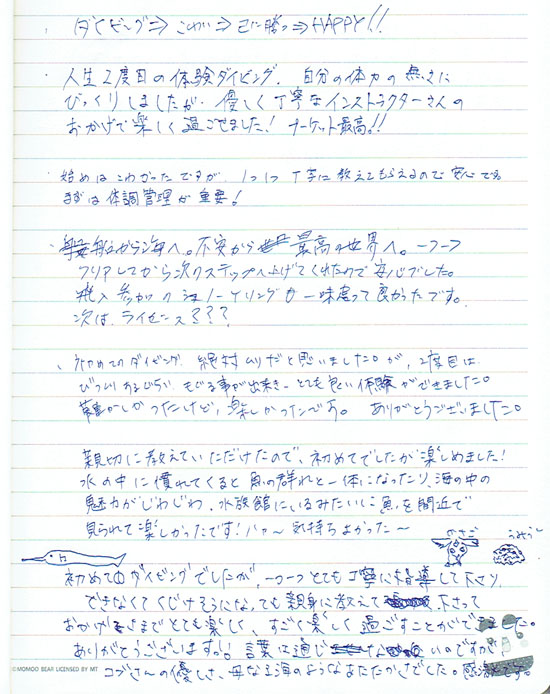 ダイビング⇒こわい⇒己に勝つ⇒HAPPY!!
人生2度目の体験ダイビング. 自分の体力の無さに
びっくりしましたが、優しく丁寧なインストラクターさんの
おかげで楽しく過ごせました! ナーケット最高!!
始めはこわかったですが、1つ1つ丁寧に教えてもらえるので安心でる
まずは体調管理が重要!
船から海へ。不安から最高の世界へ。一つ一つ
クリアしてから次のステップへ上げてくれたので安心でした。
飛入参加のシュノーケリングも一味違って良かったです。
次は、ライセンス???
初めてのダイビング、絶対ムリだと思いました。が、2度目は
びっくりするぐらい、もぐる事が出来き、とても良い体験ができました。
難しかったけど、楽しかったです。 ありがとうございました。
親切に教えていただけたので、初めてでしたが楽しめました!
水の中に慣れてくると魚の群れと一体になったり、海の中の
魅力がじわじわ、水族館にいるみたいに魚を間近で
見られて楽しかったです! ハァ〜気持ちよかった〜
かさご
うみうし
初めてのダイビングでしたが、一つ一つとても丁寧に指導して下さり、
できなくてくじけそうになっても親身に教えて下さって
おかげさまでとても楽しく、すごく楽しく過ごすことができました。
ありがとうございますっ!! 言葉は通じないのですが
コブさんの優しさ、母なる海のようなあたたかさでした。感激です。
©MOMOO BEAR LICENSED BY MT